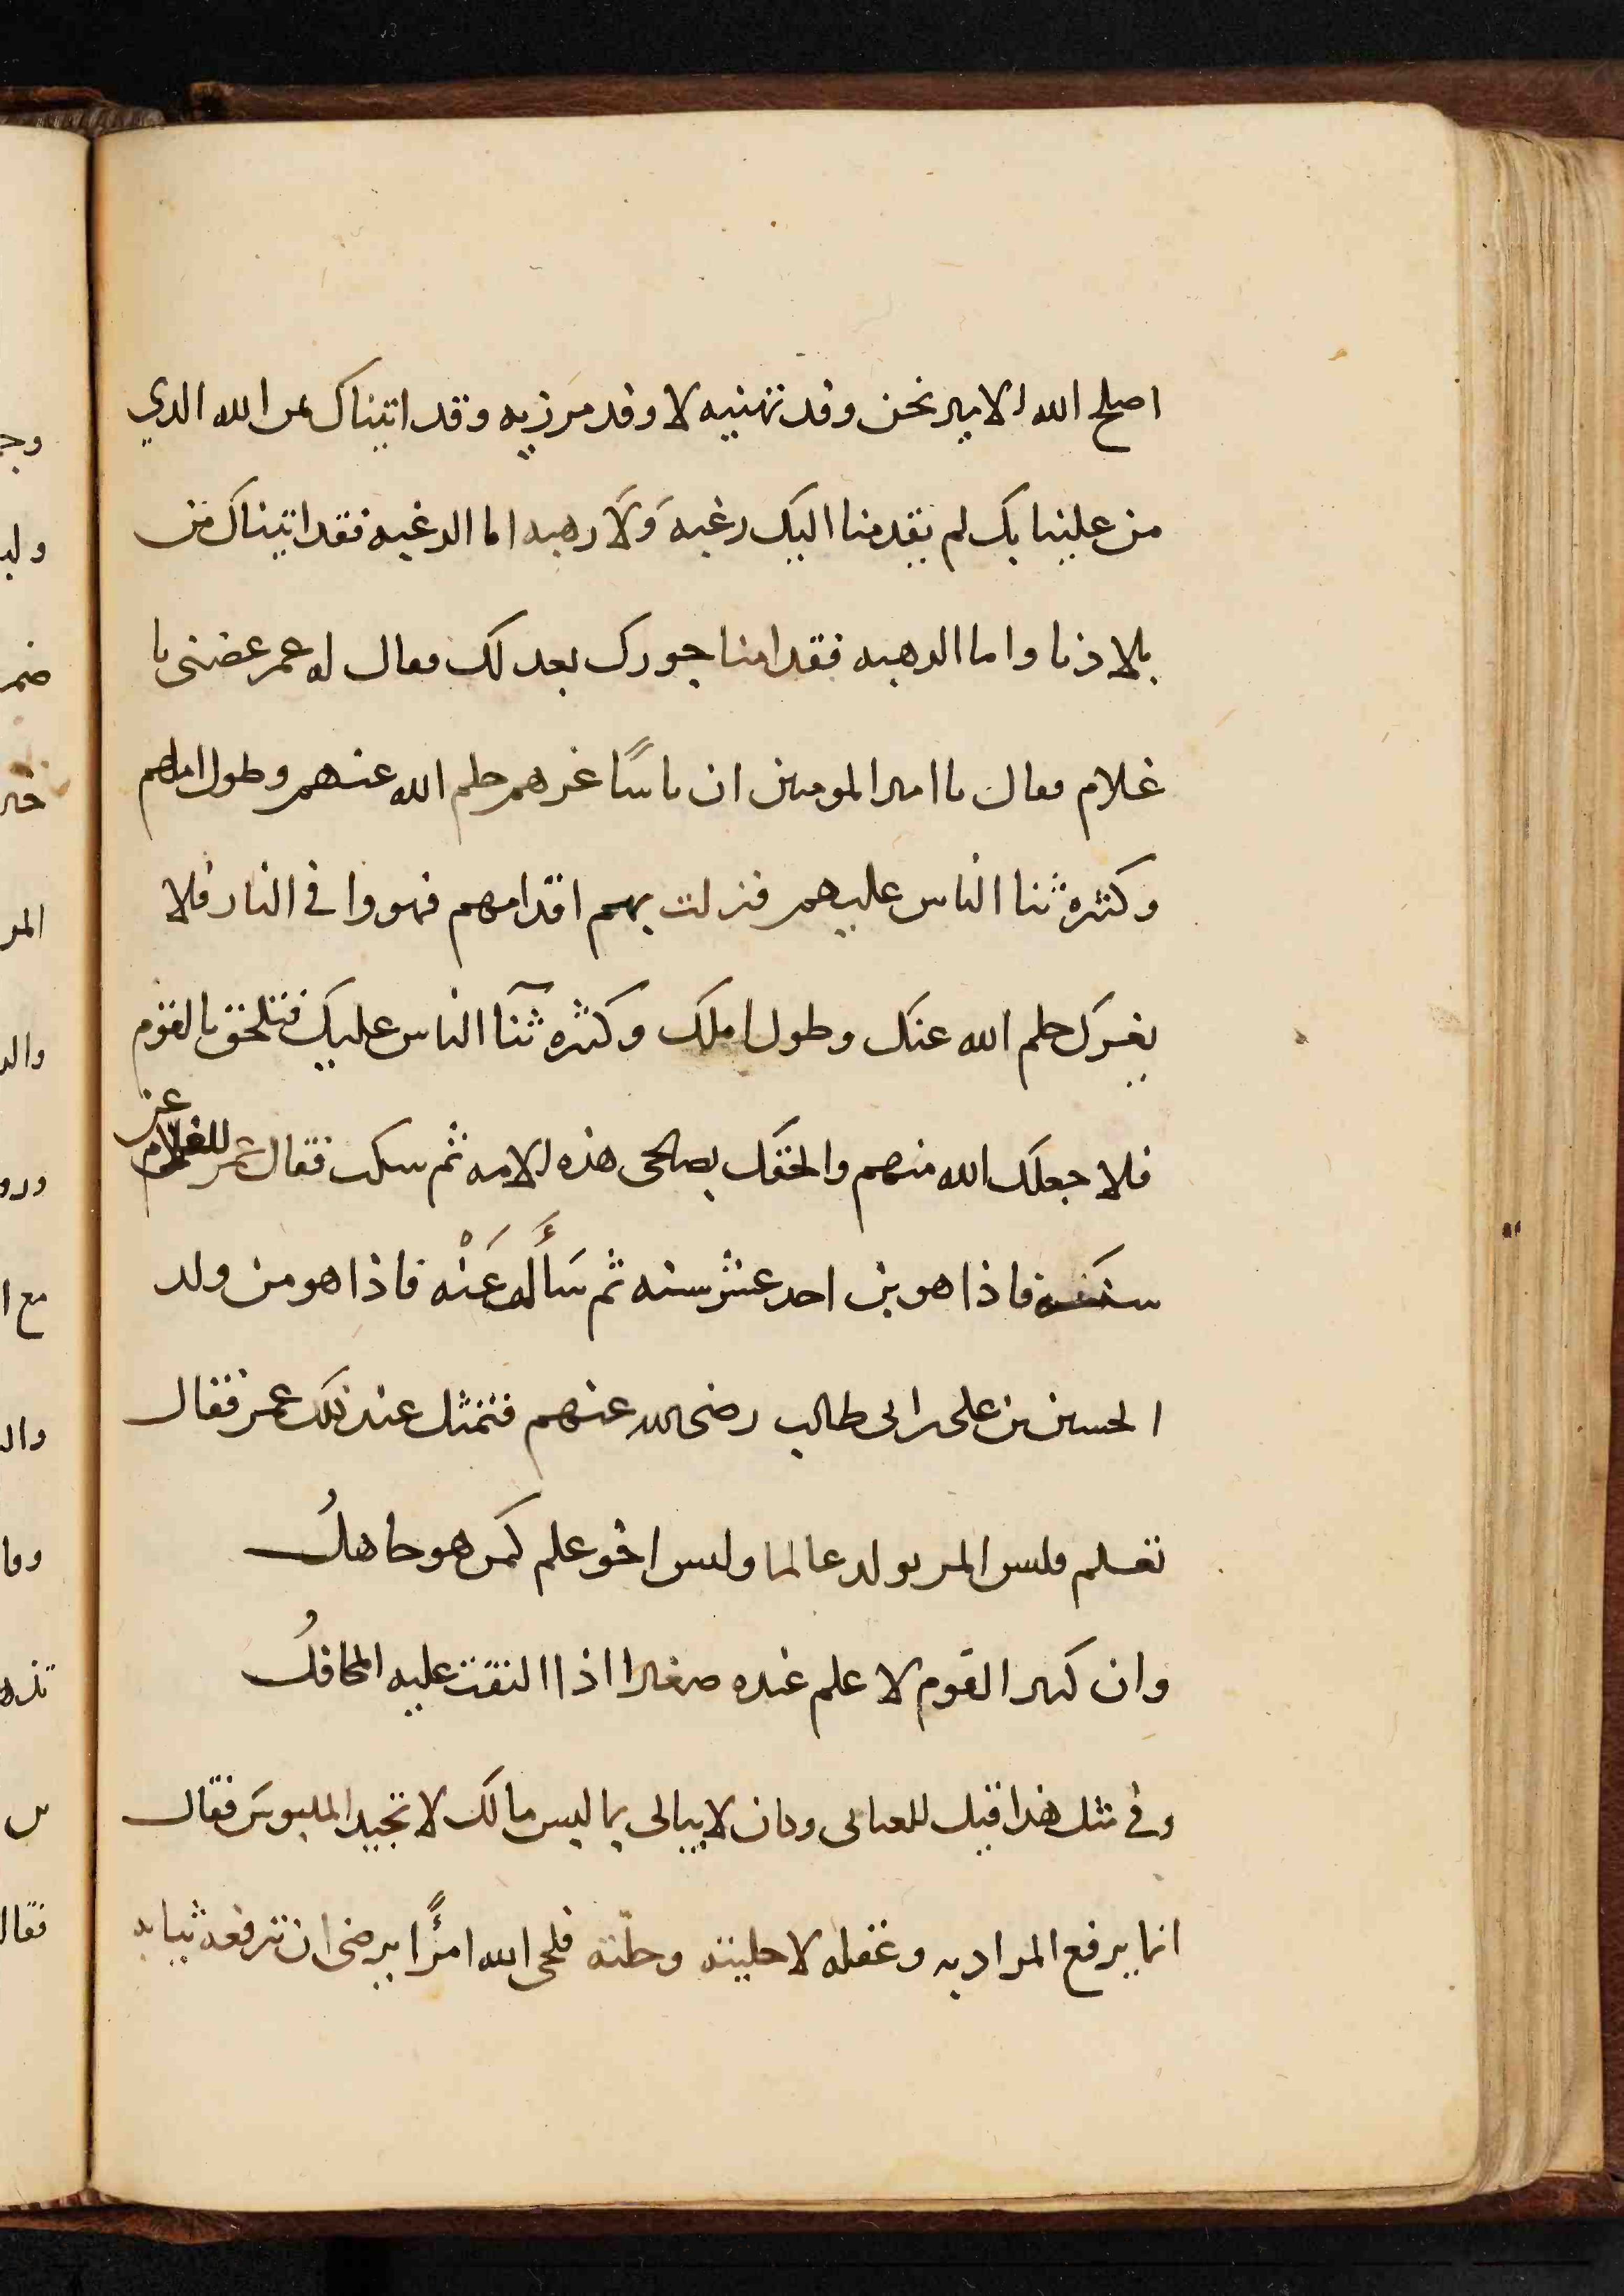 اصلح الله الامير نحن وفد تهنيه لا وفد مرزيه وقد اتيناك عن الله الدي
من علينا بك لم يقدمنا اليك رغبه وَلَا رهبه اما الرغبه فقد اتيناك من
بلادنا واما الرهبه فقد امنا جورك بعدلك فقال له عمر عضنى يا
غلام فقال يا امير المومنين ان ناسًا غرهم حلم الله عنهم وطول املهم
وكثره ثنا الناس عليهم فزلت بهم اقدامهم فهووا في النار فلا
يغرك حلم الله عنك وطول املك وكثره ثنآ الناس عليك فتلحق بالقوم
فلا جعلك الله منهم والحقك بصالحى هذه الامه ثم سكت فقال عمر للغلام عن
سنه فاذا هو بن احد عشر سنه ثم سَأَله عَنْه فاذا هو من ولد
الحسين بن على بن ابى طالب رضى الله عنهم فتمثل عند ذلك عمر فقال
تعلم فليس المر يولد عالما وليس اخو علم كمن هو جاهلُ
وان كبير القوم لا علم عنده صغيرا اذا التفت عليه المحافلُ
وفي مثل هذا قيل للعتابى وكان لا يبالى بما لبس مالك لا تجيد الملبوس فقال
انما يرفع المر ادبه وعقله لا حليته وحلته فلحى الله امرًأ يرضى ان ترفعه ثيابه